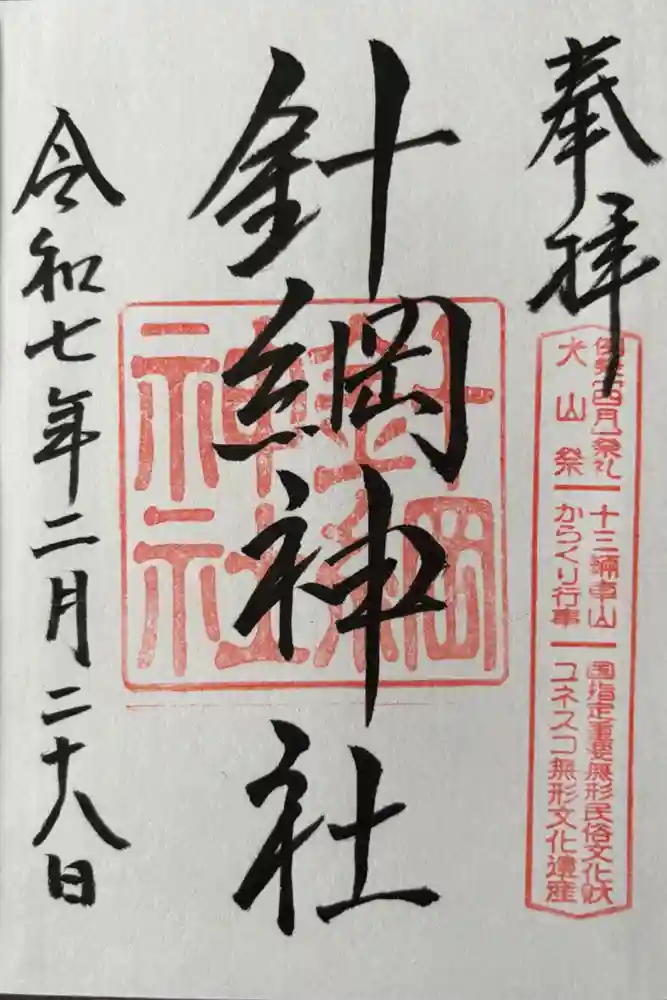 奉拝
大山祭
十三輌車山
からくり行事
国指定重要無形民俗文化財
ユネスコ無形文化遺産
針綱神社
針綱神社
令和七年二月二十八日